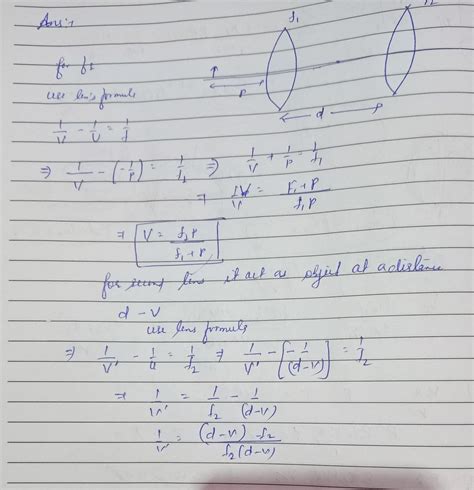 Ans:→
f1
f2
for f1
use lens formula
P
d
P
1/V - 1/V = 1/f
⇒ 1/V - (-1/P) = 1/f1 ⇒ 1/V + 1/P = 1/f1
⇒ 1/V = F1+P / f1P
⇒ V = f1P / f1+P
for second lens it act as object at a distance
d - V
use lens formula
⇒ 1/V' - 1/u = 1/f2 ⇒ 1/V' - [-1/(d-V)] = 1/f2
⇒ 1/V' = 1/f2 - 1/(d-V)
1/V' = (d-V) - f2 / f2(d-V)